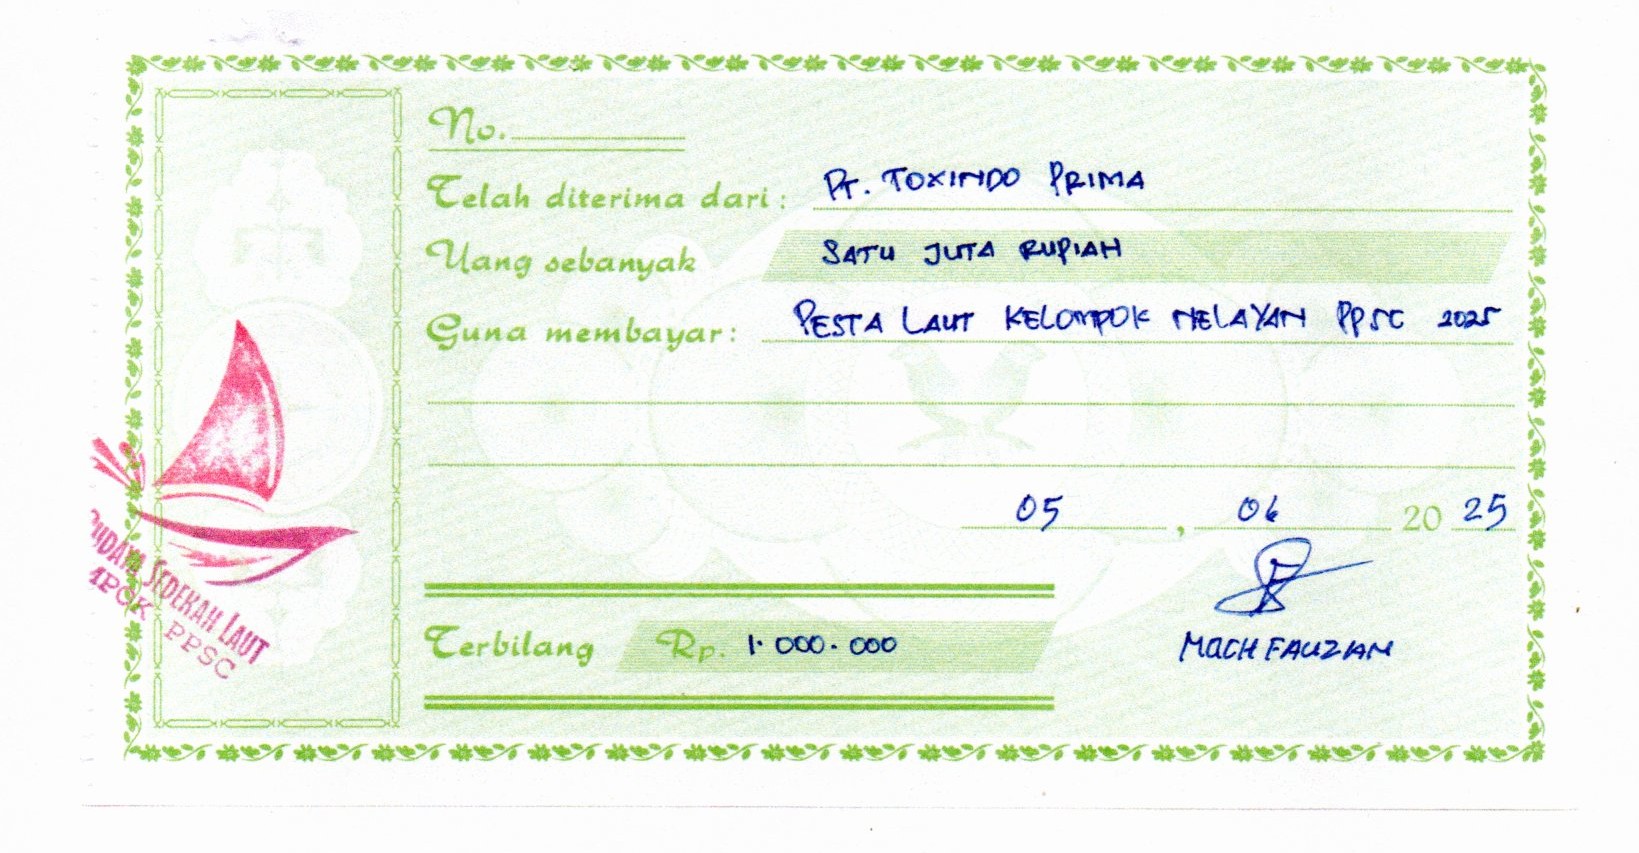 No.
Telah diterima dari : PT. TOXINDO PRIMA
Uang sebanyak SATU JUTA RUPIAH
Guna membayar : PESTA LAUT KELOMPOK NELAYAN PPSC 2025
05 , 06 20 25
Terbilang Rp. 1.000.000
MOCH FAUZAN
SEDEKAH LAUT
PPSC